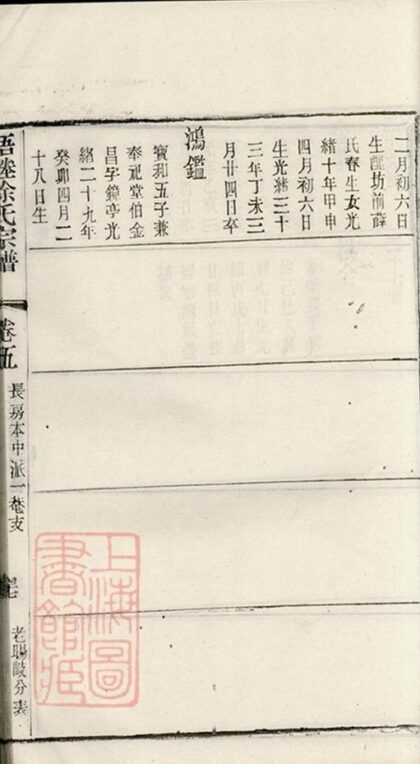 二月初六日
生配坊前薛
氏春生女光
緒十年甲申
四月初六日
生光緒三十
三年丁未三
月廿四日卒
鴻鑑
寶和五子兼
奉祀堂伯金
昌字鏡亭光
緒二十九年
癸卯四月二
十八日生
梧塍徐氏宗譜
卷五
長房本中派一菴支
老暘岐分表
上海圖
書館藏